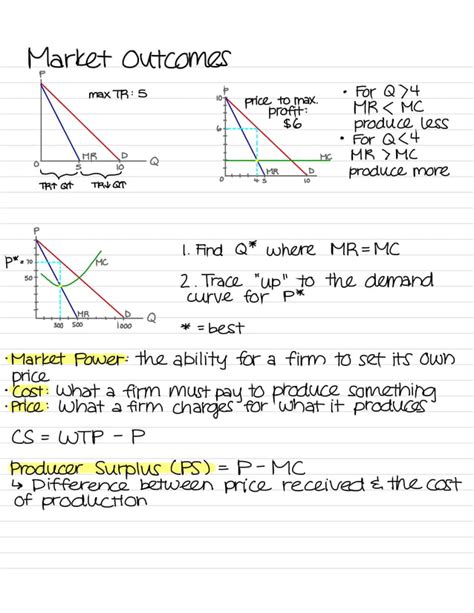 Market Outcomes
P
max TR: 5
0
5
MR
10
D
Q
TR↑ Q↑
TR↓ Q↑
P
10
6
price to max.
profit:
$6
MC
4 5
MR
10
D
• For Q>4
MR < MC
produce less
• For Q<4
MR > MC
produce more
P
P* = 70
50
MC
300 500
MR
1000
D
Q
1. Find Q* where MR=MC
2. Trace "up" to the demand
curve for P*
* = best
• Market Power: the ability for a firm to set its own
price
• Cost: What a firm must pay to produce something
• Price: What a firm charges for what it produces
CS = WTP - P
Producer Surplus (PS) = P - MC
↳ Difference between price received & the cost
of production